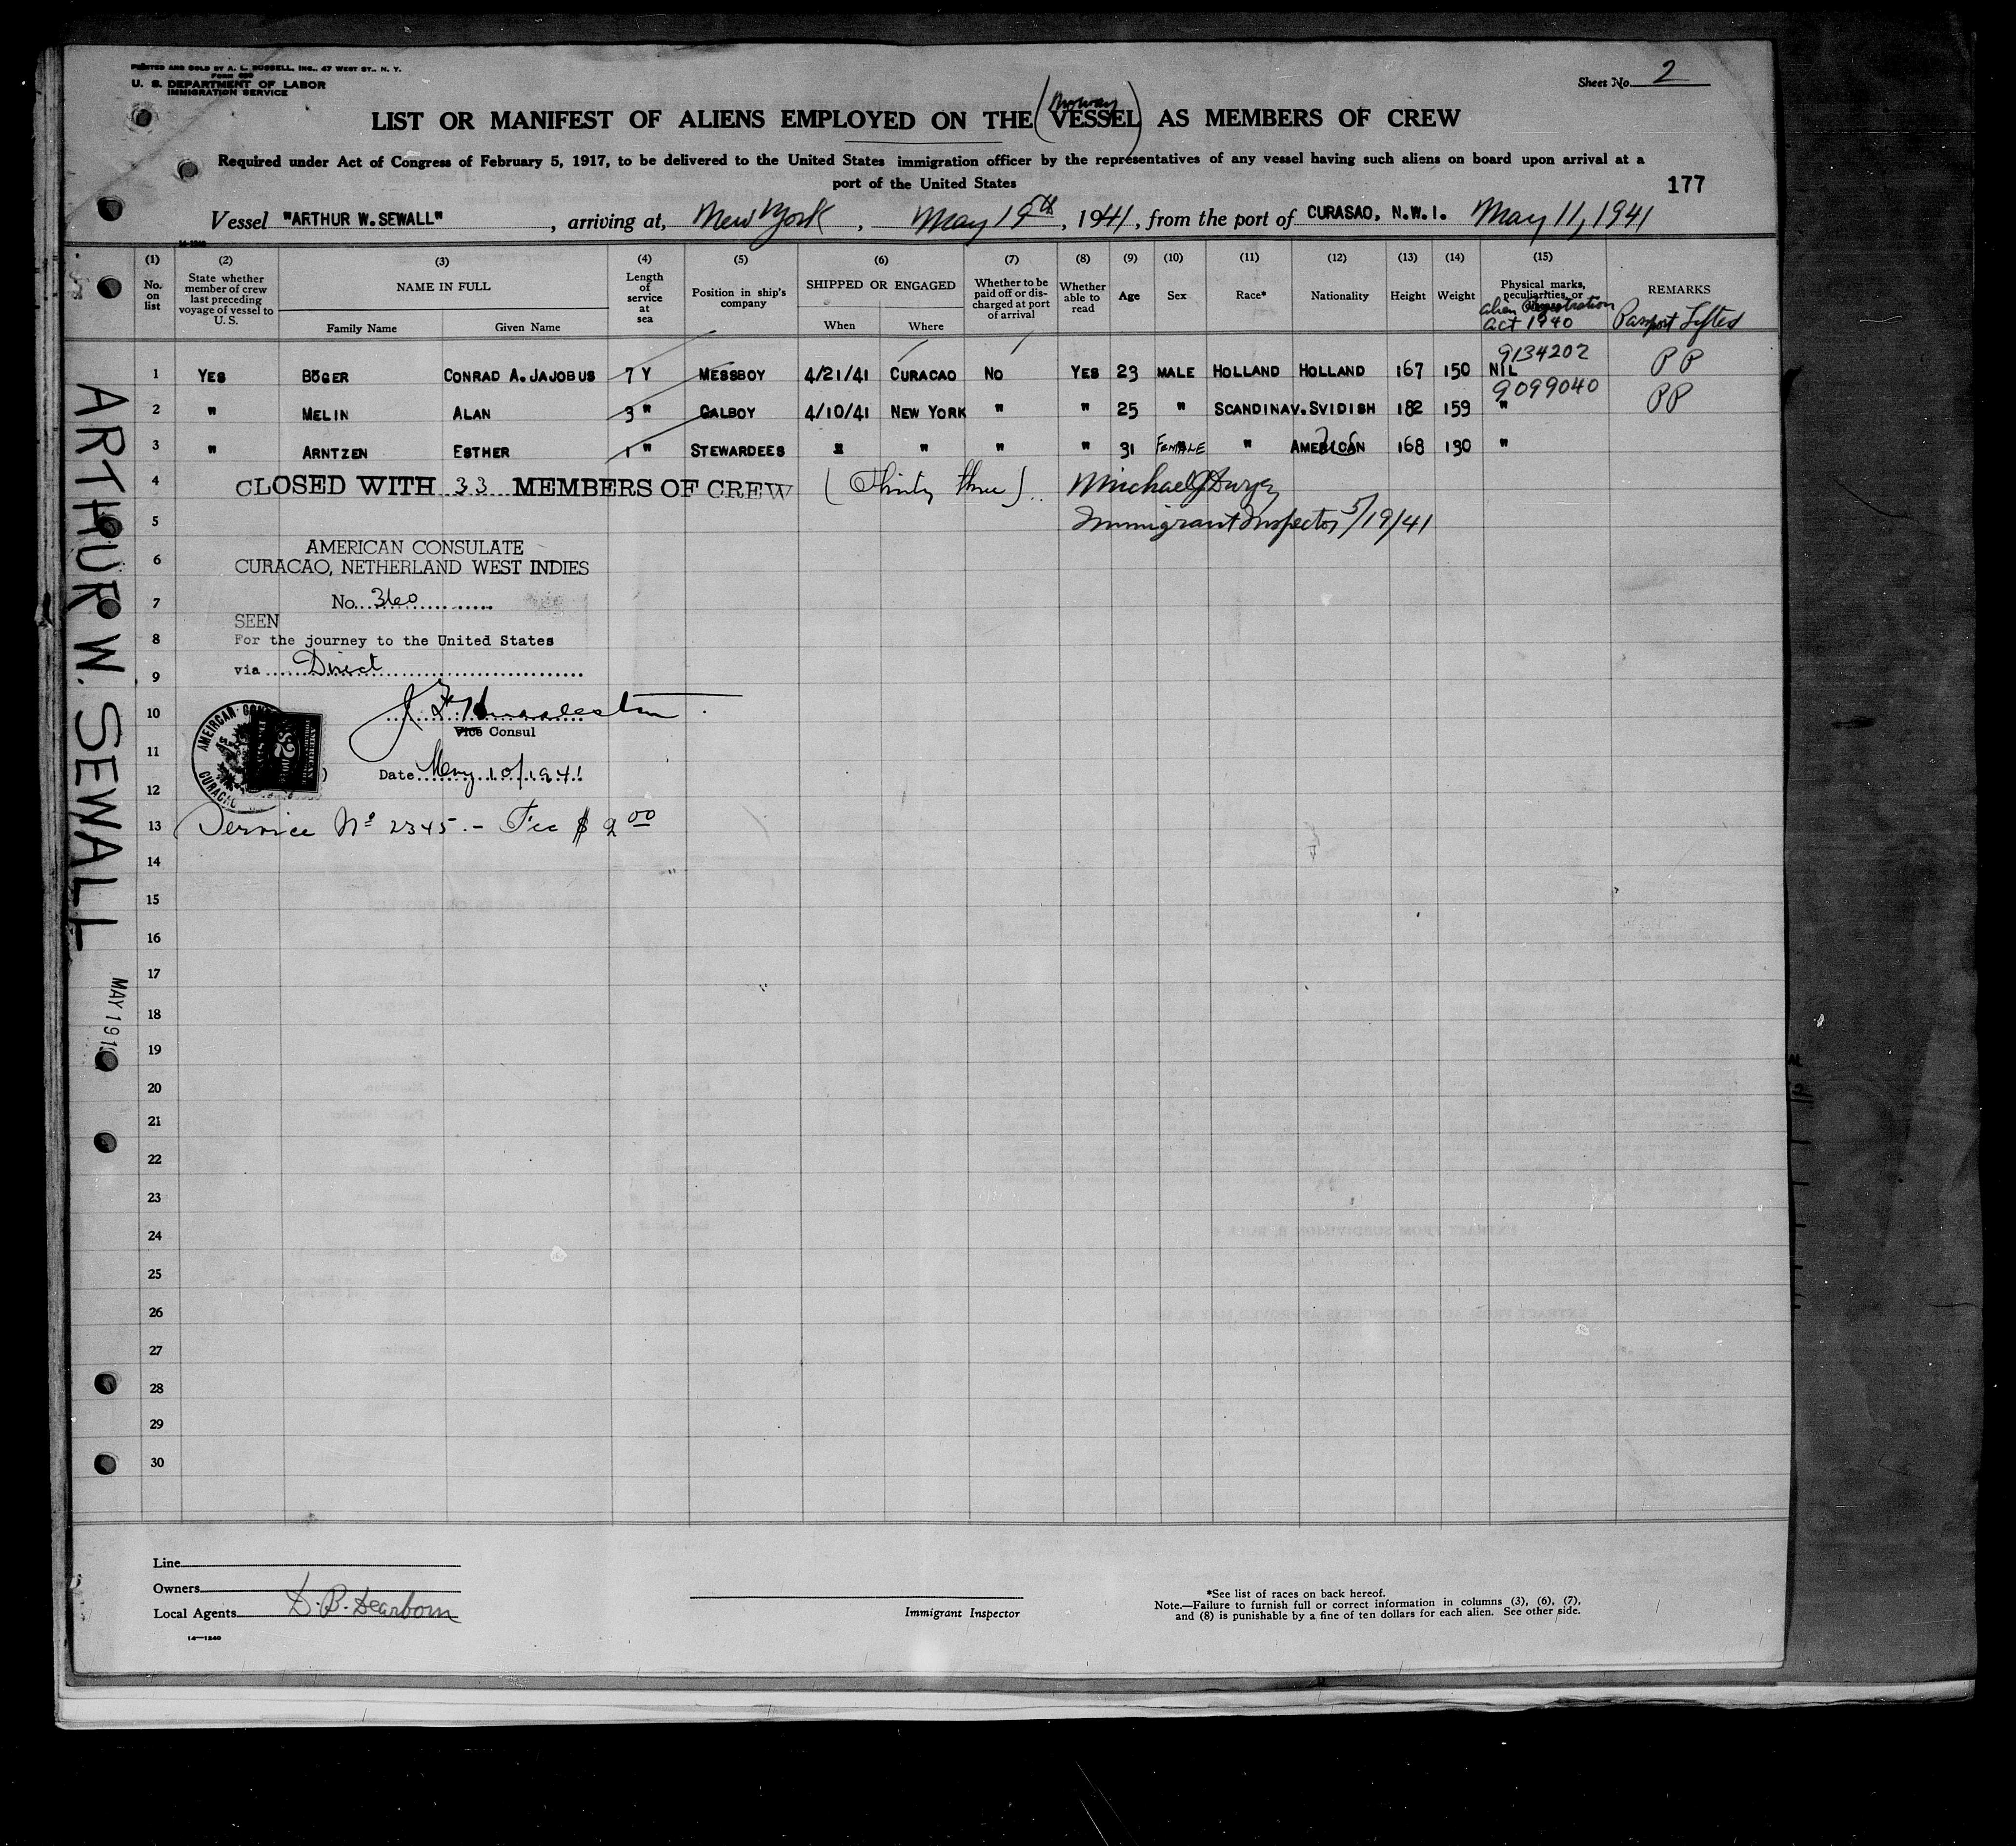 PRINTED AND SOLD BY A. L. RUSSELL, INC., 47 WEST ST., N. Y.
FORM 680
U. S. DEPARTMENT OF LABOR
IMMIGRATION SERVICE
Sheet No. 2
LIST OR MANIFEST OF ALIENS EMPLOYED ON THE (VESSEL) AS MEMBERS OF CREW
Norway
Required under Act of Congress of February 5, 1917, to be delivered to the United States immigration officer by the representatives of any vessel having such aliens on board upon arrival at a
port of the United States
177
Vessel "ARTHUR W. SEWALL", arriving at, New York, May 19th, 1941, from the port of CURASAO, N.W.I. May 11, 1941
14-1240
(1) (2) (3) (4) (5) (6) (7) (8) (9) (10) (11) (12) (13) (14) (15)
No. on list State whether member of crew last preceding voyage of vessel to U. S. NAME IN FULL Family Name Given Name Length of service at sea Position in ship's company SHIPPED OR ENGAGED When Where Whether to be paid off or discharged at port of arrival Whether able to read Age Sex Race* Nationality Height Weight Physical marks, peculiarities, or Alien Registration Act 1940 REMARKS Passport Lifted
1 YES BÖGER CONRAD A. JAJOBUS 7 Y MESSBOY 4/21/41 CURACAO NO YES 23 MALE HOLLAND HOLLAND 167 150 NIL 9134202 PP
2 " MELIN ALAN 3 " GALBOY 4/10/41 NEW YORK " " 25 " SCANDINAV. SVIDISH 182 159 " 9099040 PP
3 " ARNTZEN ESTHER 1 " STEWARDEES " " " " 31 FEMALE " AMERICAN 168 130 "
4 CLOSED WITH 33 MEMBERS OF CREW (Thirty three)
5 Immigrant Inspector 5/19/41
6 AMERICAN CONSULATE
CURACAO, NETHERLAND WEST INDIES
7 No. 360
SEEN
8 For the journey to the United States
9 via Direct
10
Vice Consul
11
Date May 10/1941
12
13 Service No 2345.- Fee $ 2 00
14
15
16
17
18
19
20
21
22
23
24
25
26
27
28
29
30
ARTHUR W. SEWALL
MAY 19 1
Line
Owners
Local Agents D. B. Dearborn
14-1240
Immigrant Inspector
*See list of races on back hereof.
Note.—Failure to furnish full or correct information in columns (3), (6), (7),
and (8) is punishable by a fine of ten dollars for each alien. See other side.